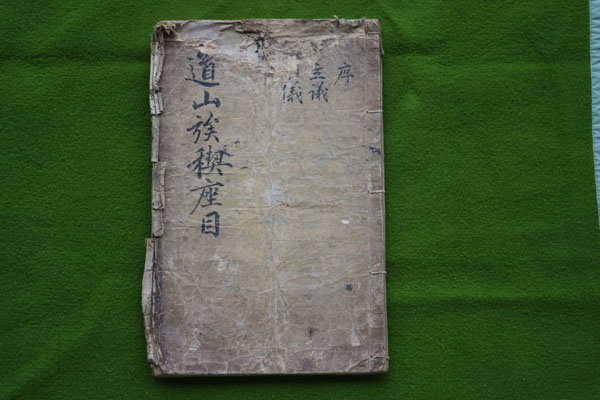 序
立議
儀
道山族稧座目